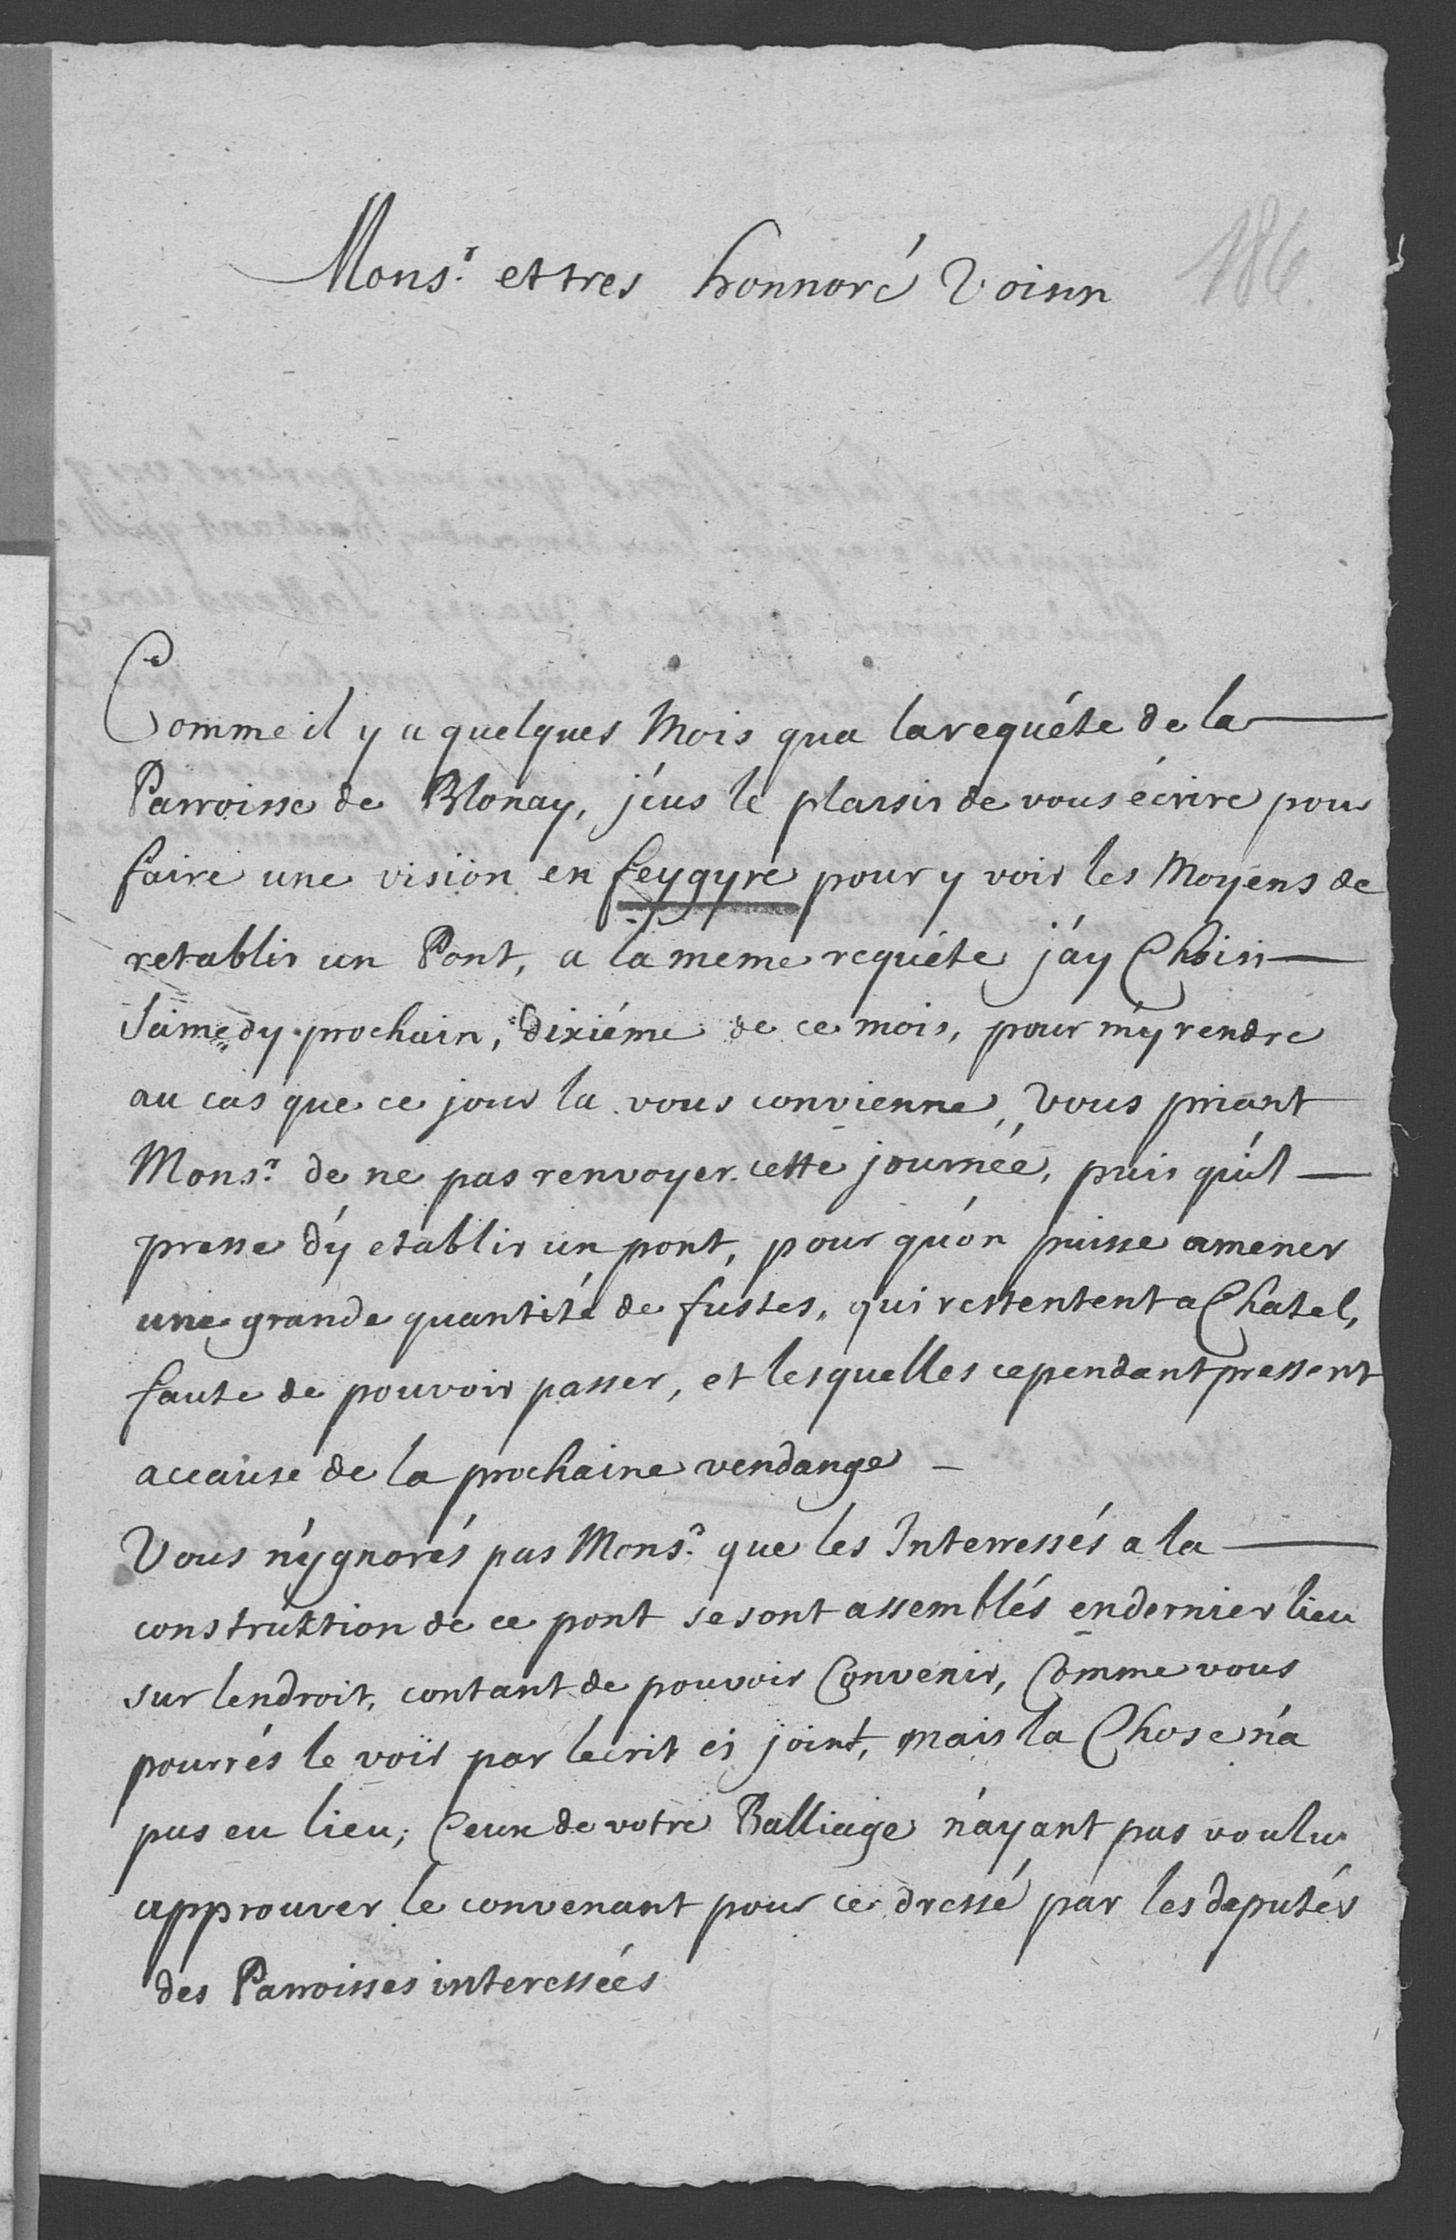 186.
Mons.r et tres honnoré Voisin
Comme il y a quelques Mois qua la requéte de la
Parroisse de Blonay, j'eus le plaisir de vous écrire pour
faire une vision en feygyre pour y voir les Moyens de
retablir un Pont, a la meme requéte j'ay Choisi
Samedy prochain, dixiéme de ce mois, pour m'y rendre
au cas que ce jour la vous convienne, Vous priant
Mons.r de ne pas renvoyer cette journée, puis qu'il
presse d'y etablir un pont, pour qu'on puisse amener
une grande quantité de fustes, qui restentent a Chatel,
faute de pouvoir passer, et lesquelles cependant pressent
accause de la prochaine vendange
Vous n'ygnorés pas Mons.r que les Interressés a la
construktion de ce pont se sont assemblés en dernier lieu
sur lendroit, contant de pouvoir Convenir, Comme vous
pourrés le voir par lecrit ci joint, mais la Chose n'a
pas eu lieu; Ceux de votre Balliage n'ayant pas voulu
approuver le convenant pour ce dressé par les deputés
des Parroisses interessées